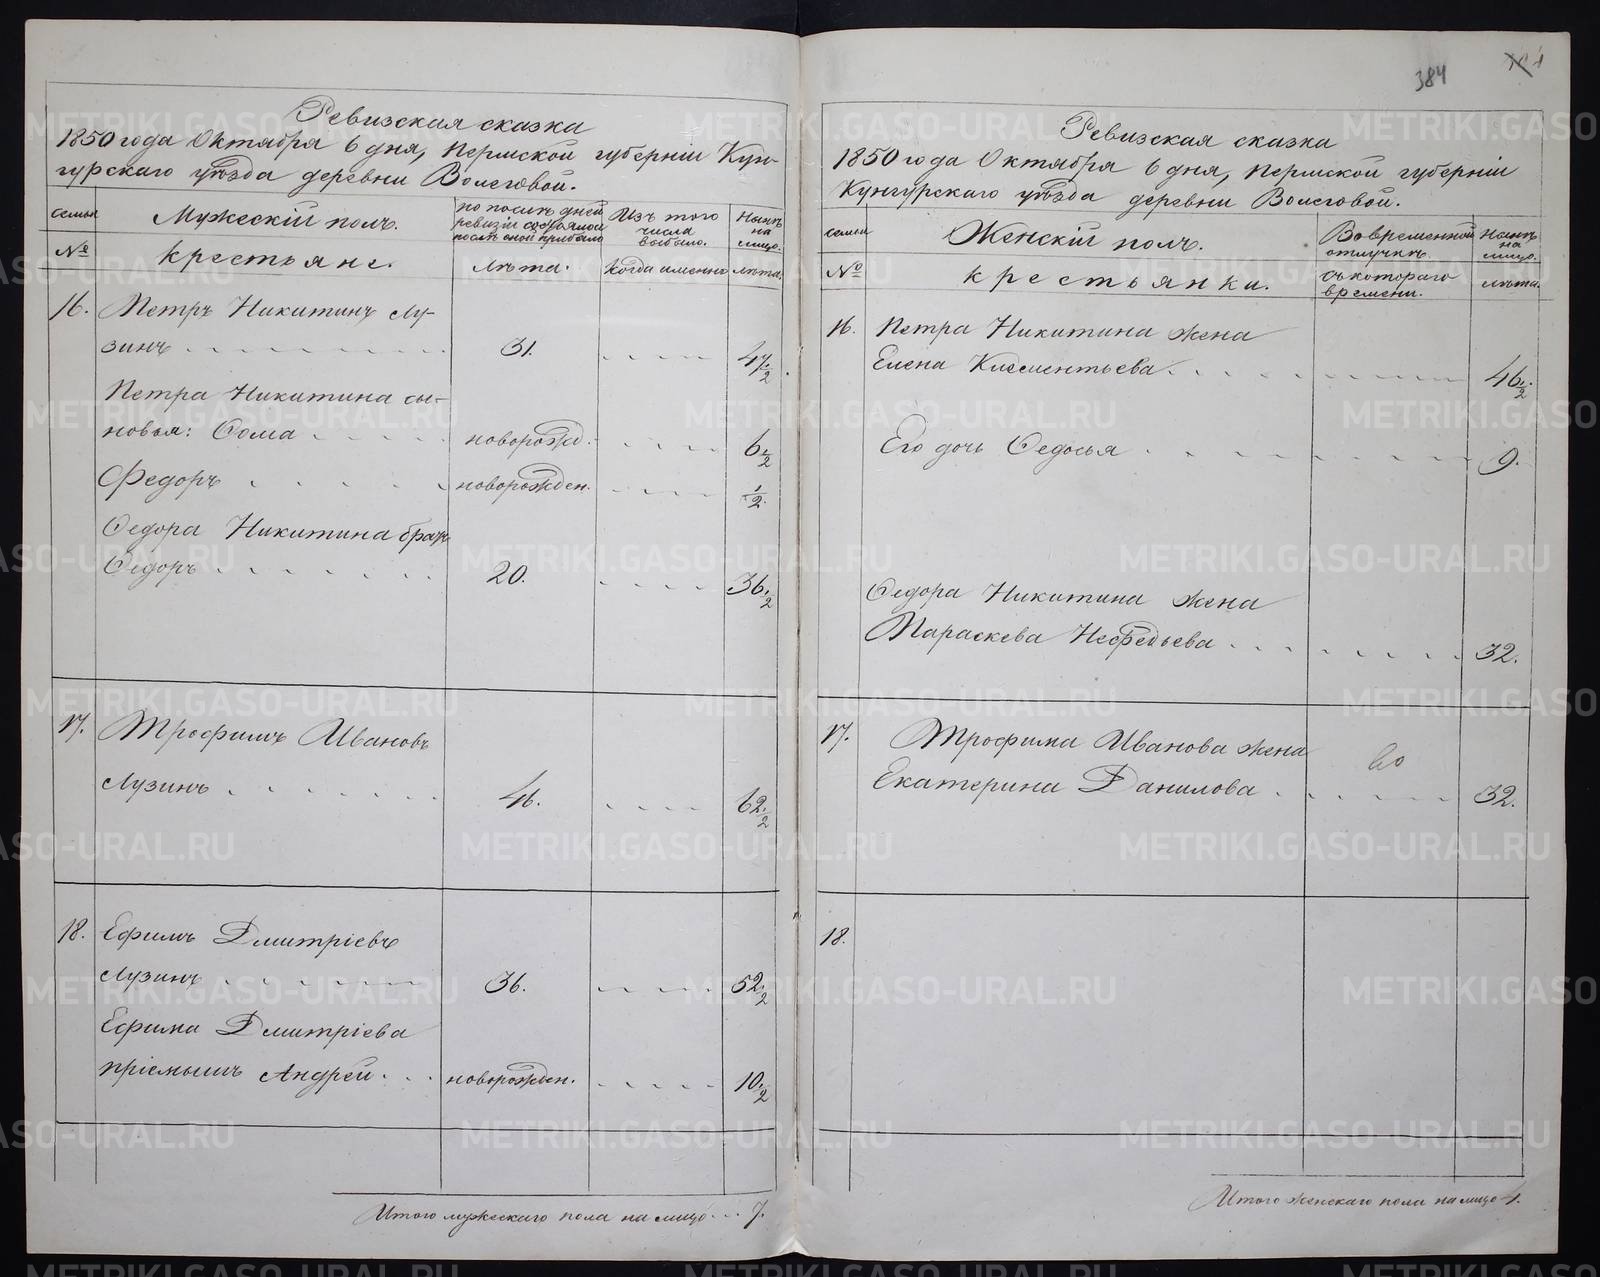 384
Ревизская сказка
1850 года Октября 6 дня, Пермской губерніи Кун-
гурскаго уѣзда деревни Волеговой.
семьи
Мужескій полъ.
по послѣдней
ревизіи состояло и
послѣ оной прибыло
Изъ того
числа
выбыло.
Нынѣ
на
лицо.
№
крестьяне.
лѣта.
Когда именно
лѣта.
16. Петръ Никитинъ Лу-
зинъ 31. 47 1/2
Петра Никитина сы-
новья: Ѳома новорожд. 6 1/2
Ѳедоръ новорожден. 1/2
Ѳедора Никитина братъ
Ѳедоръ 20. 36 1/2
17. Трофимъ Ивановъ
Лузинъ 46. 62 1/2
18. Ефимъ Дмитріевъ
Лузинъ 36. 52 1/2
Ефима Дмитріева
пріемышъ Андрей новорожден. 10 1/2
Итого мужескаго пола на лицо 7.
Ревизская сказка
1850 года Октября 6 дня, Пермской губерніи
Кунгурскаго уѣзда деревни Волеговой.
семьи
Женскій полъ.
Во временной
отлучкѣ.
Нынѣ
на
лицо.
№
крестьянки.
съ котораго
времени.
лѣта.
16. Петра Никитина жена
Елена Климентьева 46 1/2
Его дочь Ѳедосья 9.
Ѳедора Никитина жена
Параскева Нефедьева 32.
17. Трофима Иванова жена
Екатерина Данилова 32.
18.
Итого женскаго пола на лицо 4.
METRIKI.GASO-URAL.RU